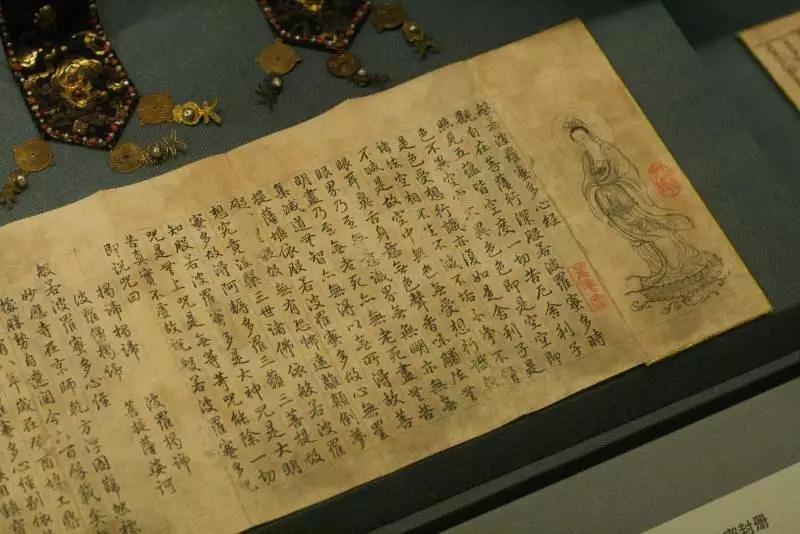 般若波羅蜜多心經
觀自在菩薩行深般若波羅蜜多時
照見五蘊皆空度一切苦厄舍利子
色不異空空不異色色即是空空即
是色受想行識亦復如是舍利子是
諸法空相不生不滅不垢不淨不增
不減是故空中無色無受想行識無
眼耳鼻舌身意無色聲香味觸法無
眼界乃至無意識界無無明亦無無
明盡乃至無老死亦無老死盡無苦
集滅道無智亦無得以無所得故菩
提薩埵依般若波羅蜜多故心無罣
礙無罣礙故無有恐怖遠離顛倒夢
想究竟涅槃三世諸佛依般若波羅
蜜多故得阿耨多羅三藐三菩提故
知般若波羅蜜多是大神咒是大明
咒是無上咒是無等等咒能除一切
苦真實不虛故說般若波羅蜜多咒
即說咒曰
揭諦揭諦 波羅揭諦
波羅僧揭諦 菩提薩婆訶
般若波羅蜜多心經
妙應寺在京師乾方浮圖巋然
封册